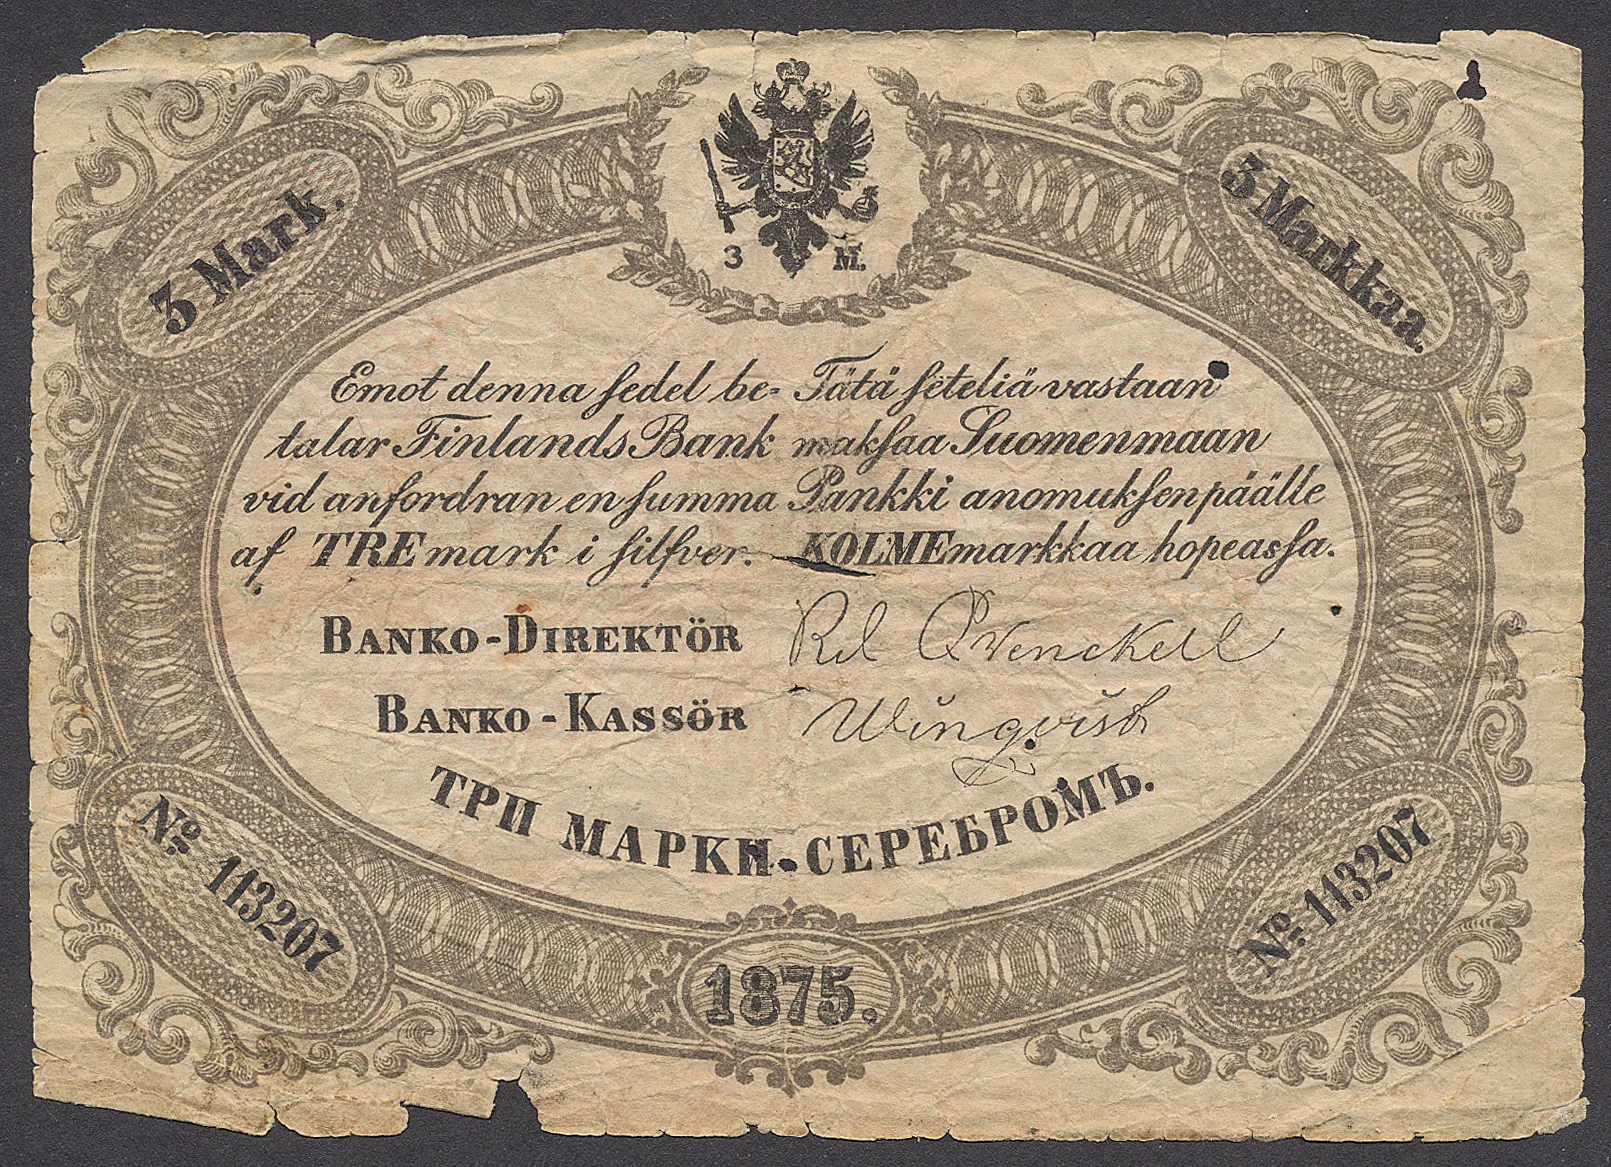 3 Mark.
3 Markkaa.
3 M.
Emot denna sedel be- Tätä seteliä vastaan
talar Finlands Bank maksaa Suomenmaan
vid anfordran en summa Pankki anomuksen päälle
af TRE mark i silfver. KOLME markkaa hopeassa.
BANKO-DIREKTÖR
BANKO-KASSÖR Winqvist
ТРИ МАРКИ СЕРЕБРОМЪ.
No. 113207
No. 113207
1875.